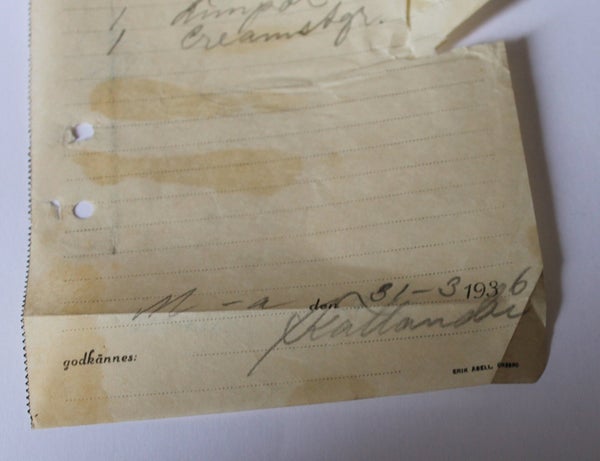 1
1 Creamstgr.
M - a den 31-3 1936
Kallander
godkännes:
ERIK ABELL, ÖREBRO